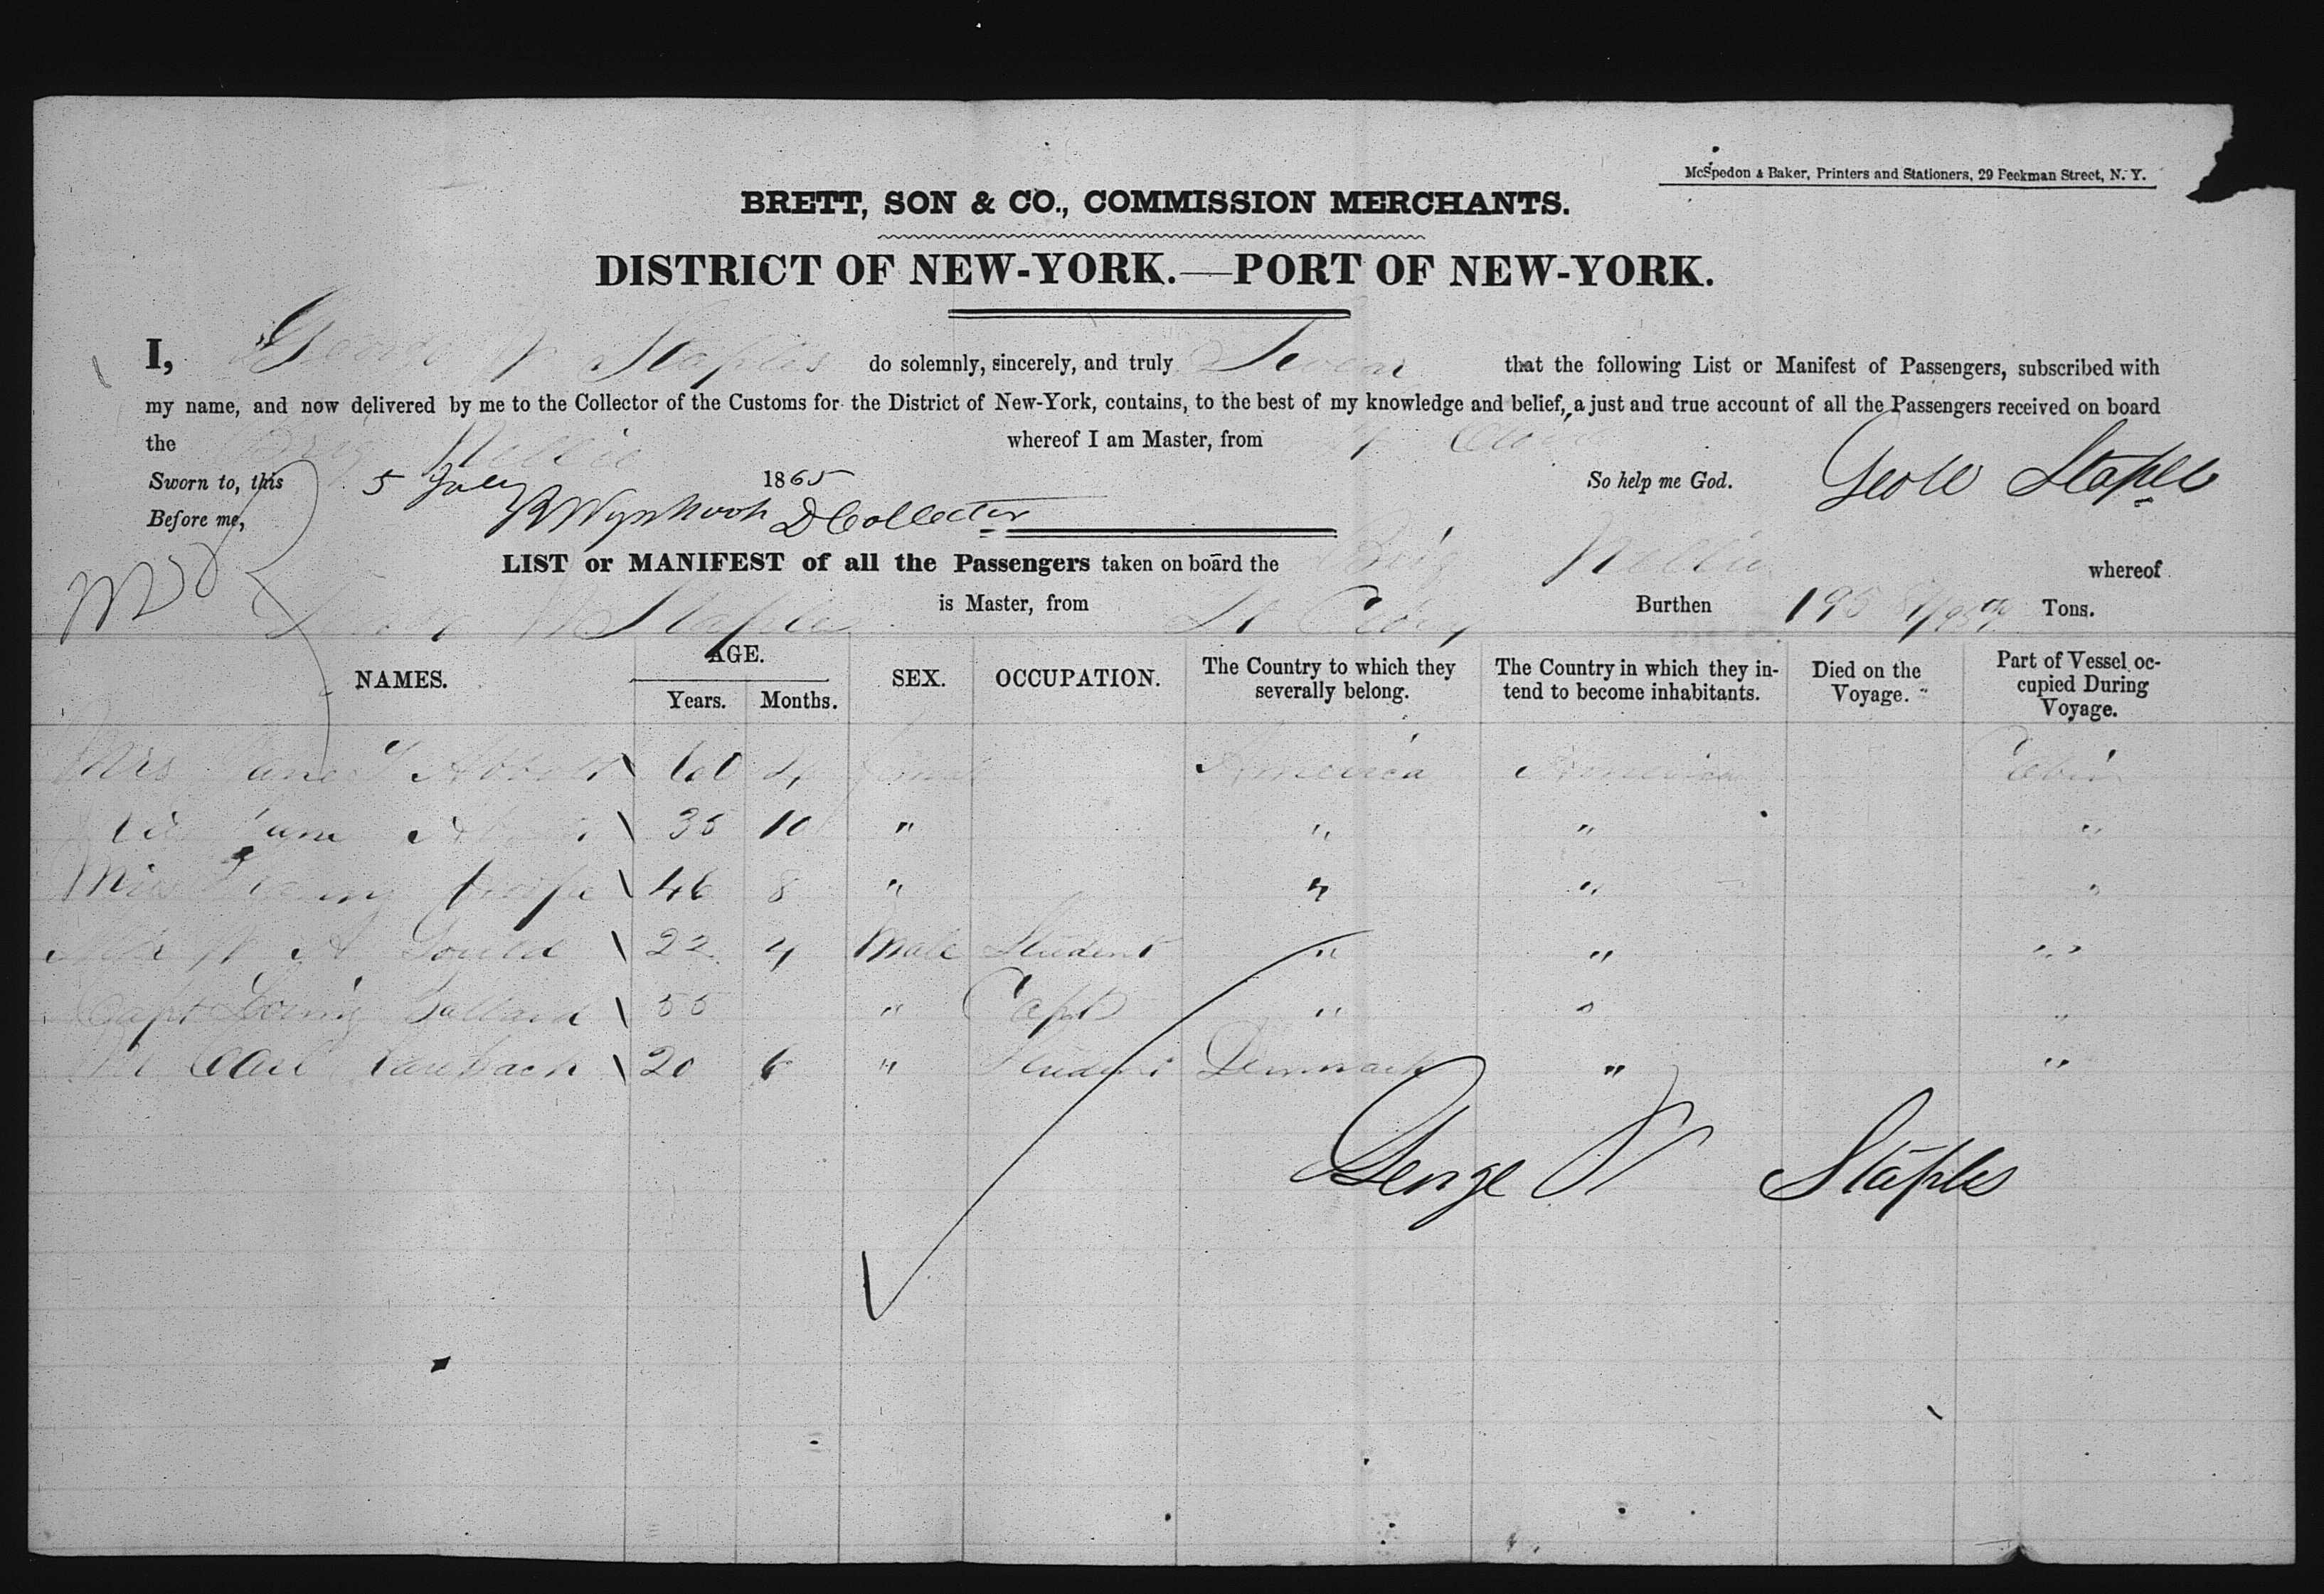 McSpedon & Baker, Printers and Stationers, 29 Beekman Street, N. Y.
BRETT, SON & CO., COMMISSION MERCHANTS.
DISTRICT OF NEW-YORK.—PORT OF NEW-YORK.
I, George W Staples do solemnly, sincerely, and truly Swear that the following List or Manifest of Passengers, subscribed with
my name, and now delivered by me to the Collector of the Customs for the District of New-York, contains, to the best of my knowledge and belief, a just and true account of all the Passengers received on board
the Brig Nellie whereof I am Master, from St Croix
Sworn to, this 5 July 1865 So help me God. Geo W Staples
Before me, D Collector
LIST or MANIFEST of all the Passengers taken on board the Brig Nellie whereof
George W Staples is Master, from St Croix Burthen 195 Tons.
NAMES. AGE. Years. Months. SEX. OCCUPATION. The Country to which they severally belong. The Country in which they intend to become inhabitants. Died on the Voyage. Part of Vessel occupied During Voyage.
Mrs Jane Abbott 60 4 female America America Cabin
Jane 35 10 " " " "
Miss 46 8 " " " "
Mr W A Gould 22 4 Male Student " " "
Capt Loring Ballard 55 " Capt " " "
Mr Carl 20 6 " Student Denmark " "
George W Staples